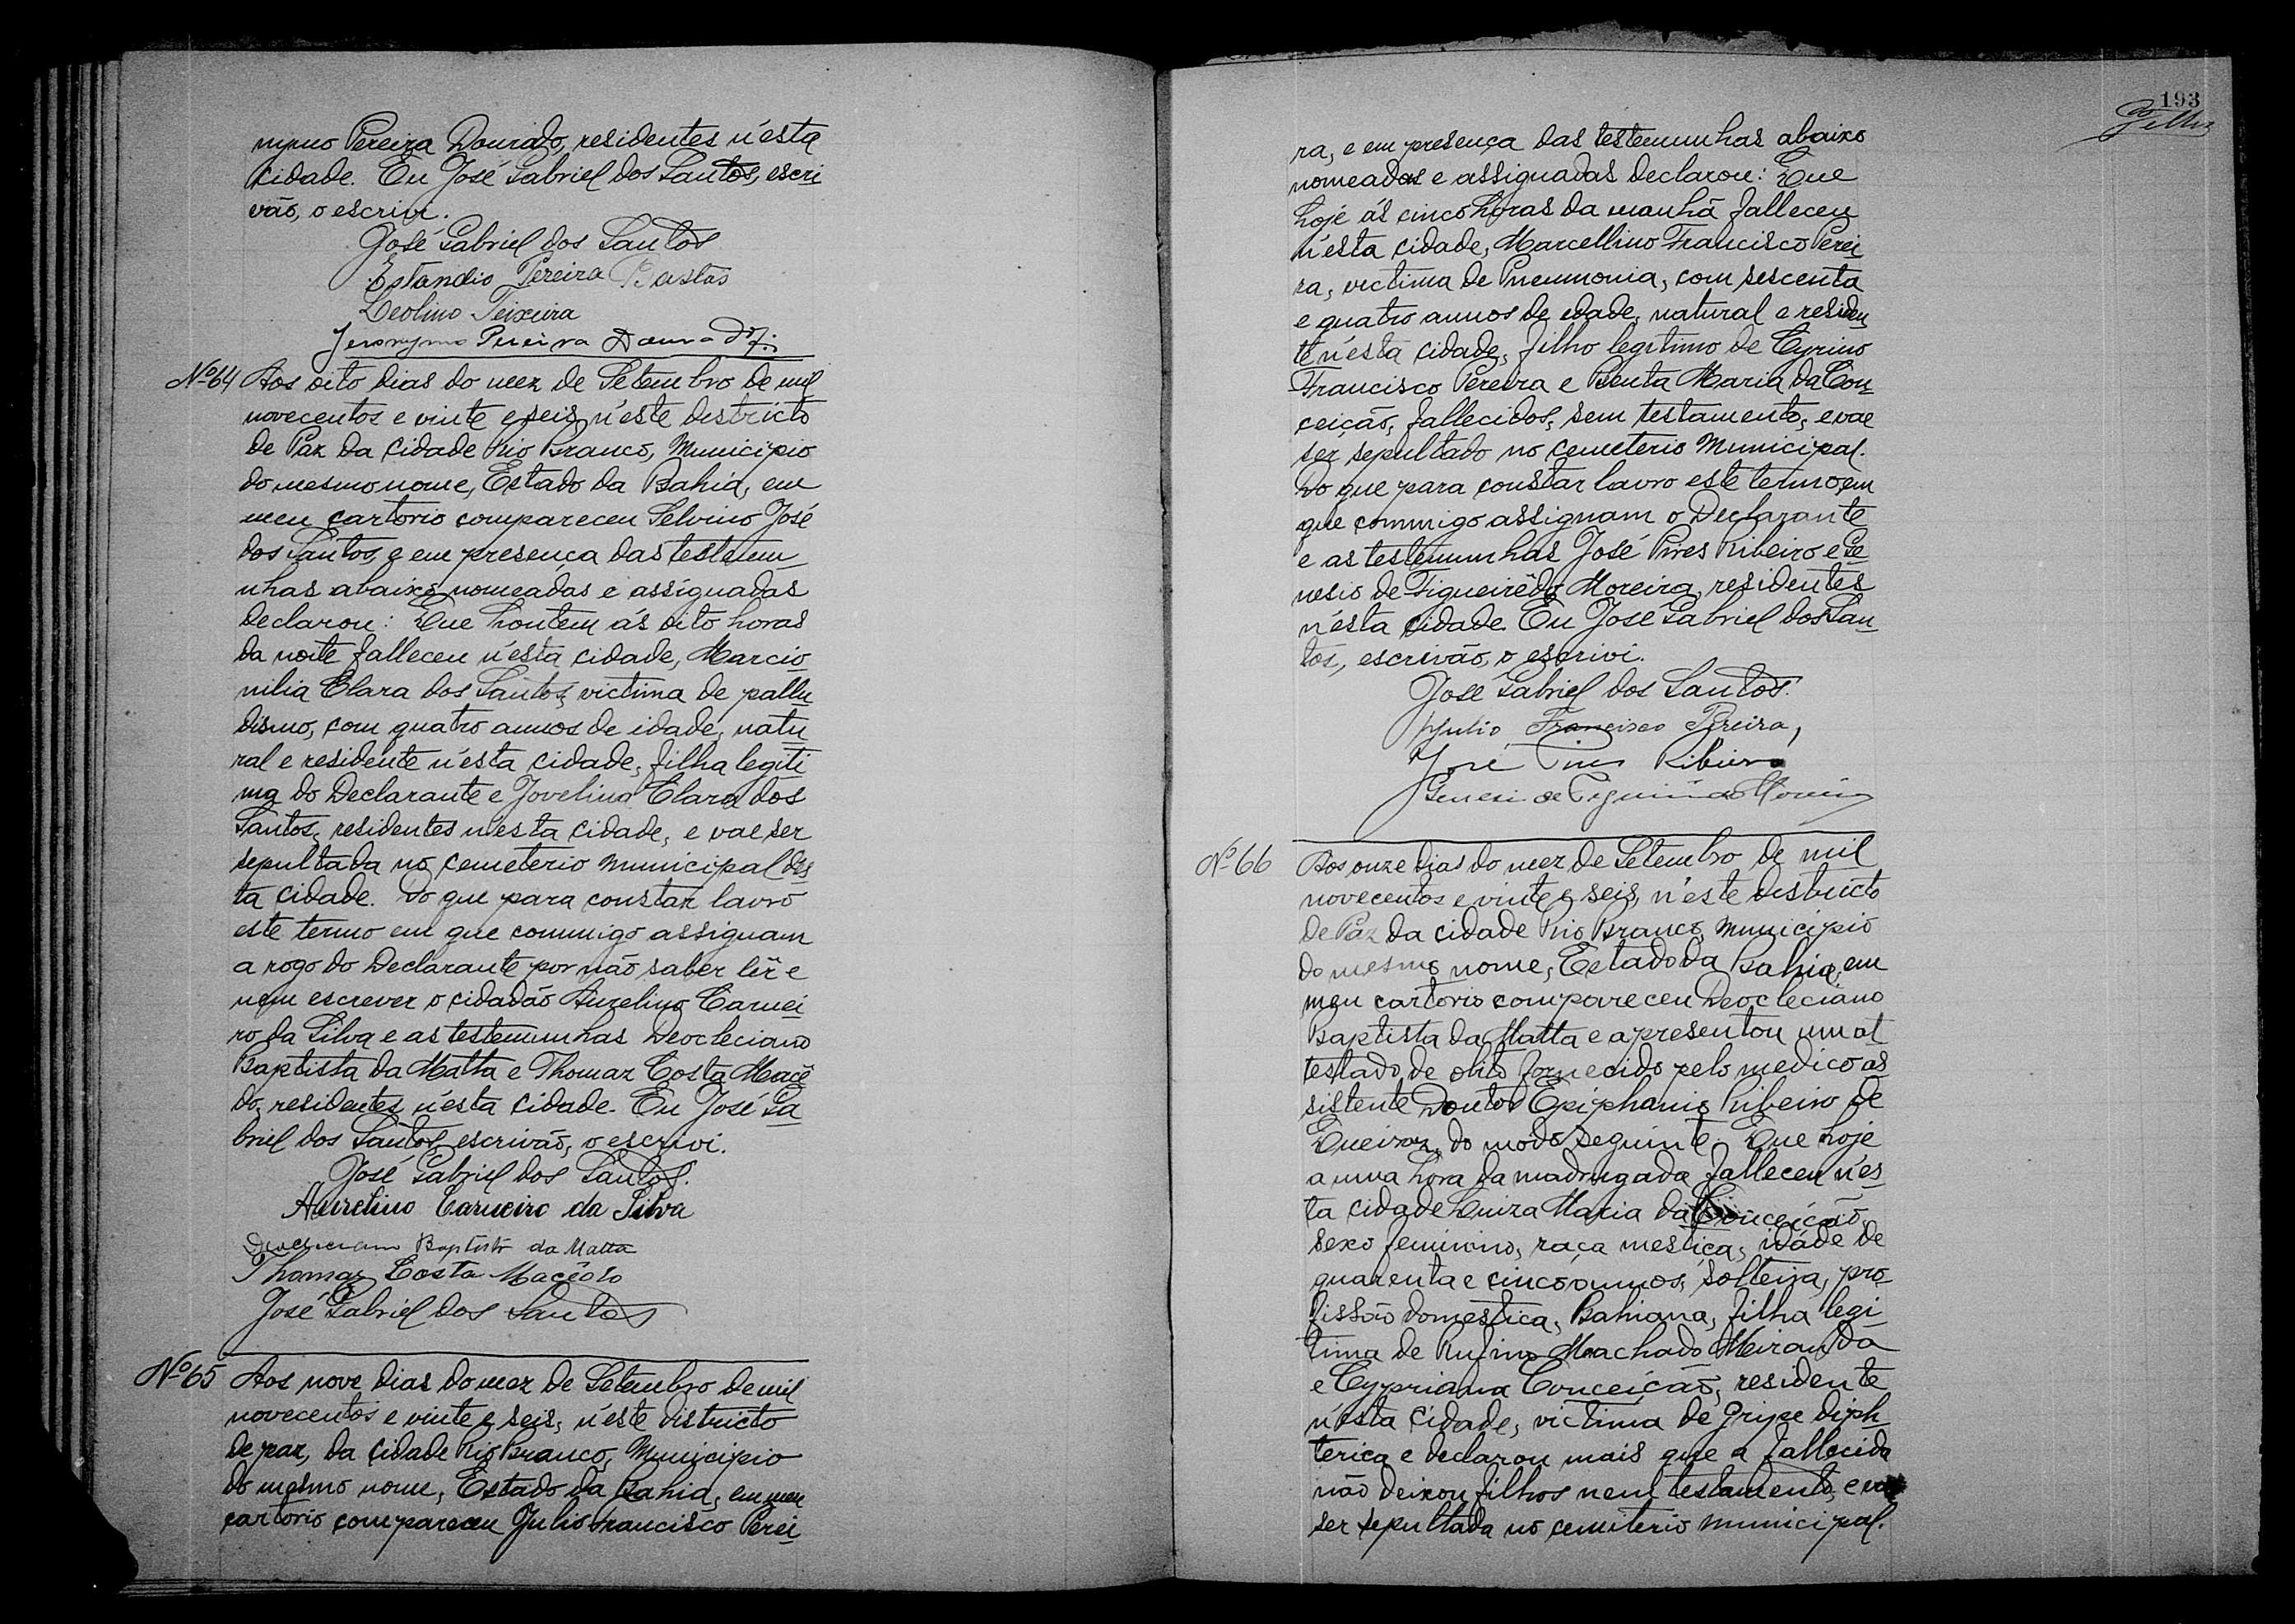 nymo Pereira Dourado, residentes n'esta
cidade. Eu José Gabriel dos Santos, escri
vão, o escrivi.
José Gabriel dos Santos
Pereira Bastos
Leolino Teixeira
Jeronymo Pereira Dourado
Nº 64 Aos oito dias do mez de Setembro de mil
novecentos e vinte e seis, n'este districto
de Paz da cidade Rio Branco, Municipio
do mesmo nome, Estado da Bahia, em
meu cartorio compareceu Selvino José
dos Santos, e em presença das testemu
nhas abaixo nomeadas e assignadas
declarou: Que hontem ás oito horas
da noite falleceu n'esta cidade, Marcio
nilia Clara dos Santos, victima de pallu
dismo, com quatro annos de idade, natu
ral e residente n'esta cidade, filha legiti
ma do Declarante e Jovelina Clara dos
Santos, residentes n'esta cidade, e vae ser
sepultada no cemeterio municipal des
ta cidade. Do que para constar lavro
este termo em que commigo assignam
a rogo do Declarante por não saber lêr e
nem escrever o cidadão Aurelino Carnei
ro da Silva e as testemunhas Deocleciano
Baptista da Matta e Thomaz Costa Macê
do, residentes n'esta cidade. Eu José Ga
briel dos Santos, escrivão, o escrivi.
José Gabriel dos Santos.
Aurelino Carneiro da Silva
Deocleciano Baptista da Matta
Thomaz Costa Macêdo
José Gabriel dos Santos
Nº 65 Aos nove dias do mez de Setembro de mil
novecentos e vinte e seis, n'este districto
de paz, da cidade Rio Branco, Municipio
do mesmo nome, Estado da Bahia, em meu
cartorio compareceu Julio Francisco Perei
193
ra, e em presença das testemunhas abaixo
nomeadas e assignadas declarou: Que
hoje ás cinco horas da manhã falleceu
n'esta cidade, Marcellino Francisco Perei
ra, victima de Pneumonia, com sescenta
e quatro annos de edade, natural e residen
te n'esta cidade, filho legitimo de Cyrino
Francisco Pereira e Benta Maria da Con
ceição, fallecidos, sem testamento, e vae
ser sepultado no cemeterio Municipal.
Do que para constar lavro este termo em
que commigo assignam o Declarante
e as testemunhas José Pires Ribeiro e Ge
nesio de Figueirêdo Moreira, residentes
n'esta cidade. Eu José Gabriel dos San
tos, escrivão, o escrivi.
José Gabriel dos Santos.
Julio Francisco Pereira,
José Pires Ribeiro
Genesi de Figueirêdo Moreira
Nº 66 Aos onze dias do mez de Setembro de mil
novecentos e vinte e seis, n'este districto
de Paz da cidade Rio Branco, Municipio
do mesmo nome, Estado da Bahia, em
meu cartorio compareceu Deocleciano
Baptista da Matta e apresentou um at
testado de obito fornecido pelo medico as
sistente Doutor Epiphanio Ribeiro de
Queiroz, do modo seguinte: Que hoje
a uma hora da madrugada falleceu n'es
ta cidade Luiza Maria da Conceição,
sexo feminino, raça mestiça, idade de
quarenta e cinco annos, solteira, pro
fissão domestica, Bahiana, filha legi-
tima de Rufino Machado Miranda
e Cypriana Conceição, residente
n'esta cidade, victima de Gripe diph
terica e declarou mais que a fallecida
não deixou filhos nem testamento, e vae
ser sepultada no cemiterio municipal.